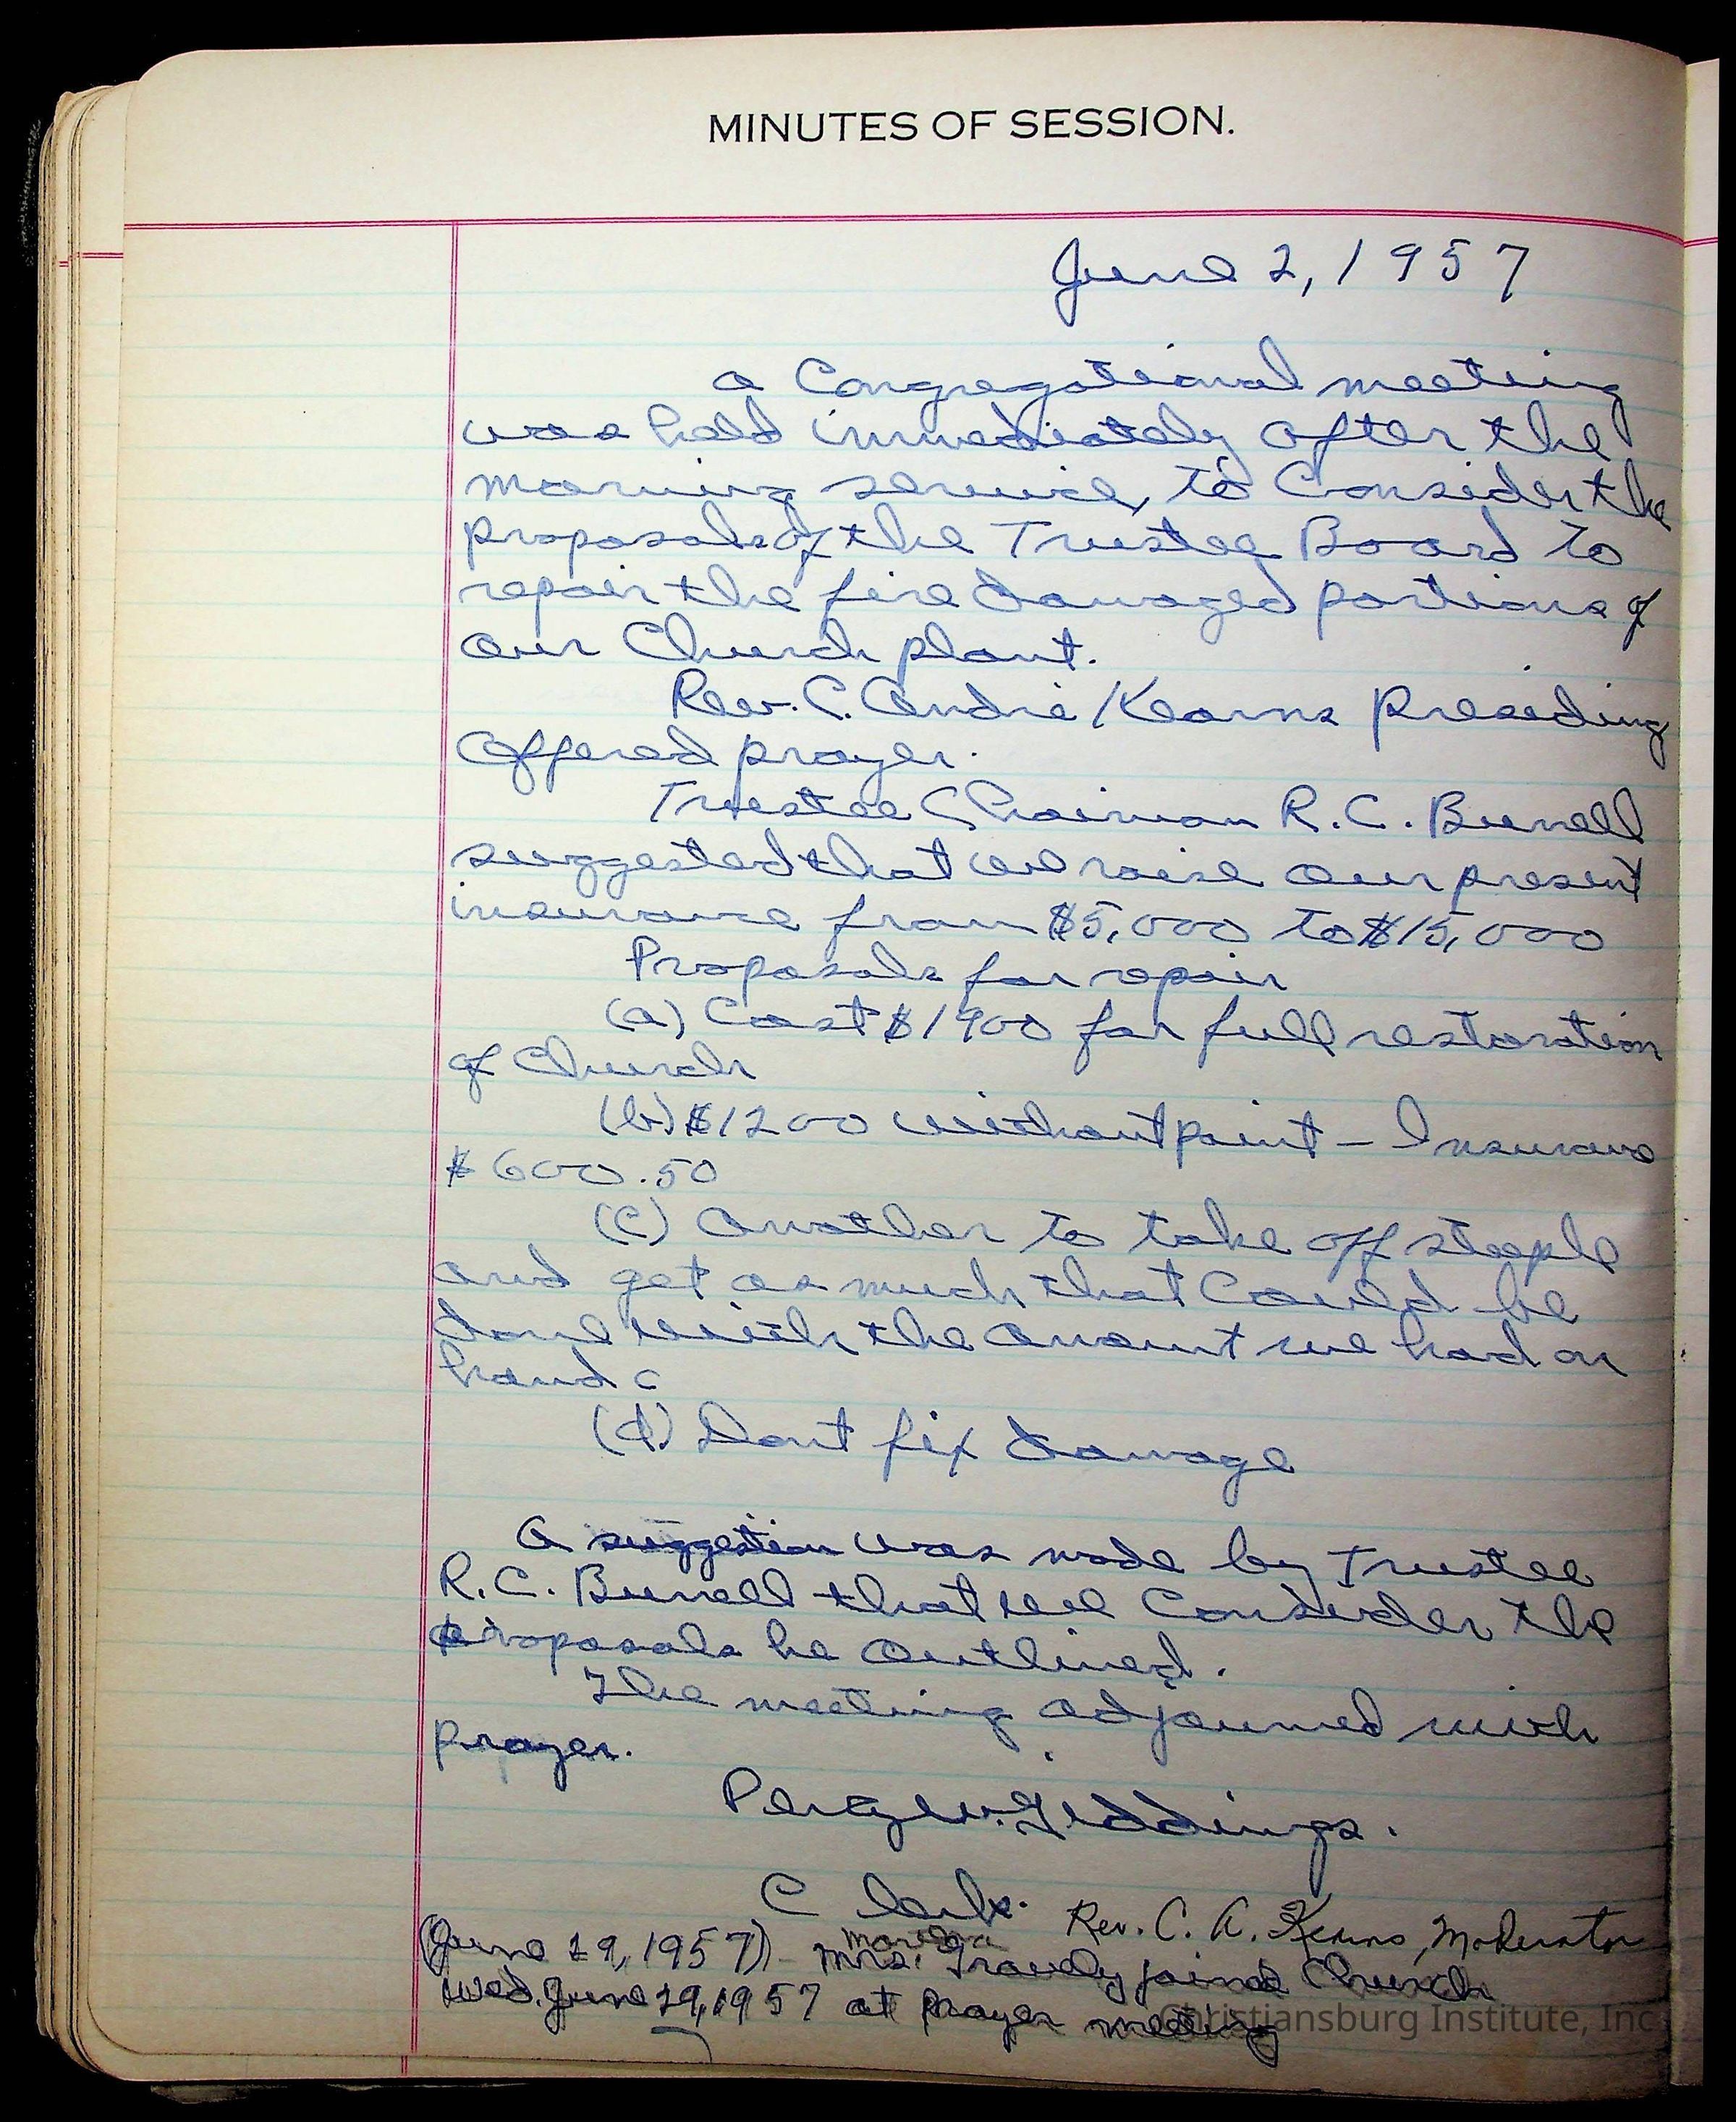 MINUTES OF SESSION.
June 2, 1957
a Congregational meeting
was held immediately after the
morning service, to Consider the
proposals of the Trustee Board to
repair the fire damaged portions of
our Church plant.
Rev. C. Andre Kearns presiding
Offered prayer.
Trustee Chairman R. C. Burrell
suggested that we raise our present
insurance from $5,000 to $15,000
Proposals for repair
(a) Cost $1900 for full restoration
of Church
(b) $1200 without paint - Insurance
$600.50
(c) Another to take off steeple
and get as much that Could be
done with the amount we had on
hand
(d) Dont fix damage
A suggestion was made by Trustee
R. C. Burrell that we Consider the
proposals he outlined.
The meeting adjourned with
prayer.
Percy W. Giddings.
Clerk. Rev. C. A. Kearns, Moderator
(June 19, 1957) - Mrs. joined Church
Wed. June 19, 1957 at prayer meeting
Christiansburg Institute, Inc